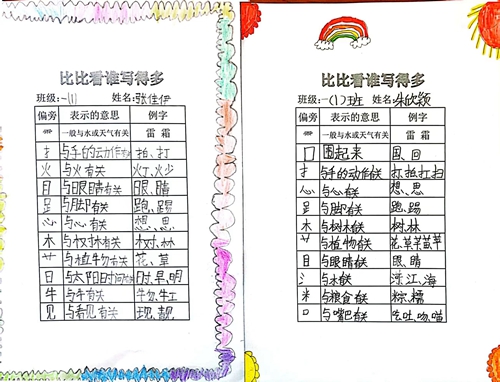 比比看谁写得多
班级:一(1) 姓名:张佳伊
偏旁 表示的意思 例字
⻗ 一般与水或天气有关 雷 霜
扌 与手的动作有关 拍、打
火 与火有关 灯、火少
目 与眼睛有关 眼、睛
𧾷 与脚有关 跑、踢
心 与心有关 想、思
木 与树林有关 树、林
艹 与植物有关 花、草
日 与太阳时间有关 时、早、明
牛 与牛有关 物、牡
见 与看见有关 现、靓
比比看谁写得多
班级:一(1)班 姓名:朱欣颖
偏旁 表示的意思 例字
⻗ 一般与水或天气有关 雷 霜
囗 围起来 国、回
扌 与手的动作有关 打、抬、扛、扫
心 与心有关 想、思
𧾷 与脚有关 跑、踢
木 与树木有关 树、林
艹 与植物有关 花、草
目 与眼睛有关 眼、睛
氵 与水有关 江、海
米 与粮食有关 粽、糯
口 与嘴巴有关 吃、吐、吻、喵